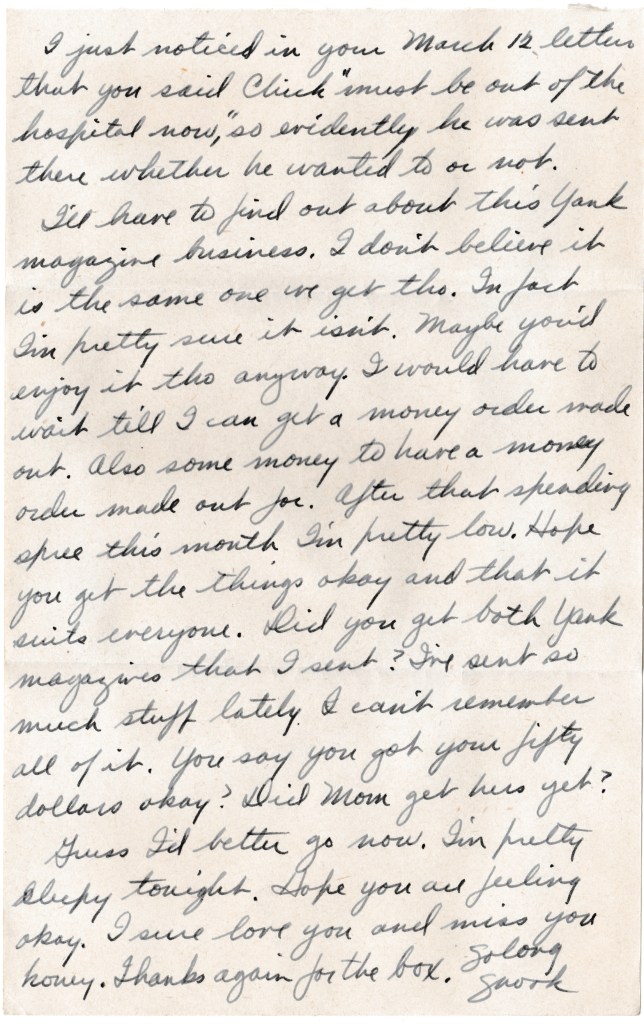 I just noticed in your March 12 letter
that you said Chuck "must be out of the
hospital now," so evidently he was sent
there whether he wanted to or not.
I'll have to find out about this Yank
magazine business. I don't believe it
is the same one we get tho. In fact
I'm pretty sure it isn't. Maybe you'd
enjoy it tho anyway. I would have to
wait till I can get a money order made
out. Also some money to have a money
order made out for. After that spending
spree this month I'm pretty low. Hope
you get the things okay and that it
suits everyone. Did you get both Yank
magazines that I sent? I've sent so
much stuff lately I can't remember
all of it. You say you got your fifty
dollars okay? Did Mom get hers yet?
Guess I'd better go now. I'm pretty
sleepy tonight. Hope you are feeling
okay. I sure love you and miss you
honey. Thanks again for the box. Solong
Snook